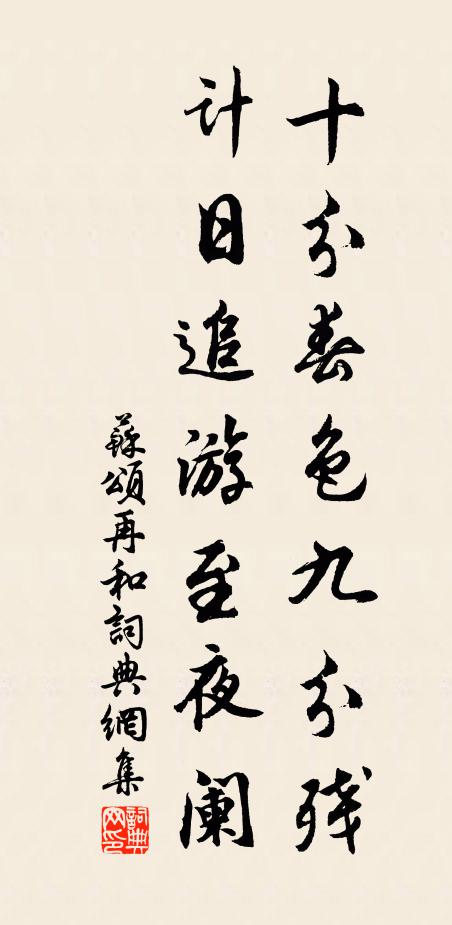 十分春色九分残
计日追游至夜阑
蘇頌再和詞典網集
詞典网印